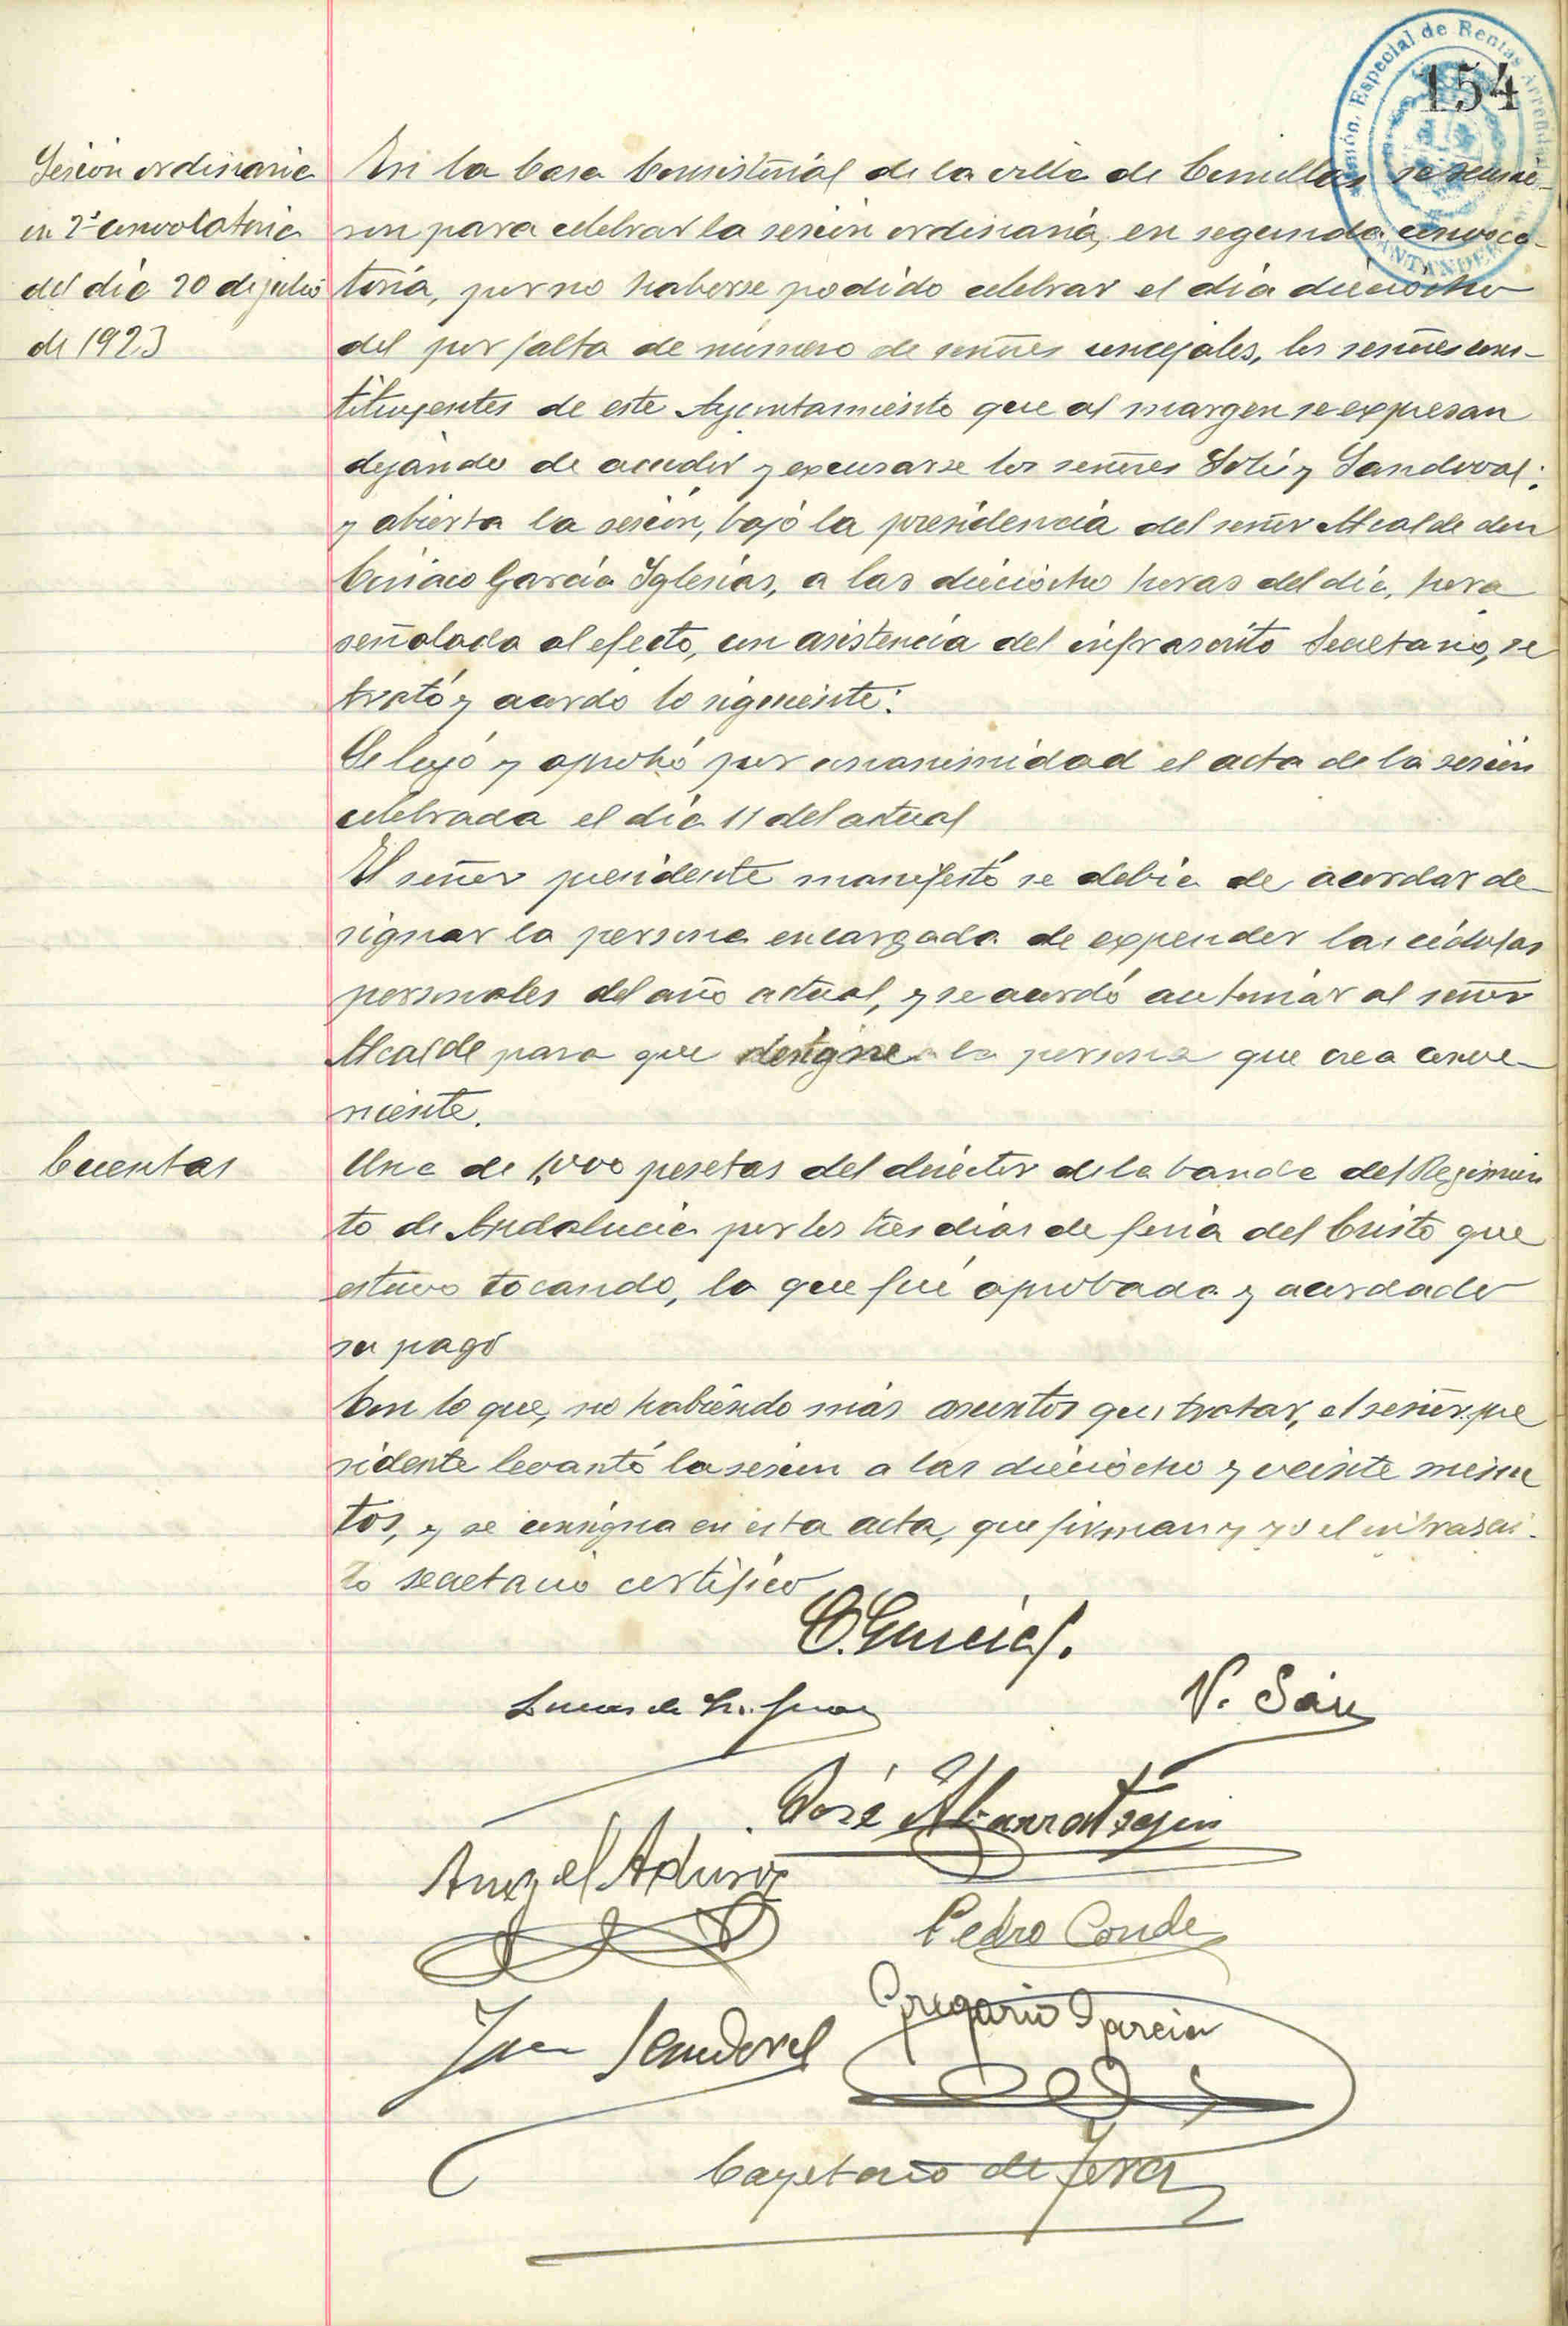 154
Sesión ordinaria
en 2ª convocatoria
del dia 20 de julio
de 1923
En la Casa Consistorial de la villa de Comillas se reunie-
ron para celebrar la sesión ordinaria, en segunda convoca-
toria, por no haberse podido celebrar el dia dieciocho
del por falta de número de señores concejales, los señores cons-
tituyentes de este Ayuntamiento que al margen se expresan
dejando de acudir y excusarse los señores Solís y Sandoval;
y abierta la sesión, bajo la presidencia del señor Alcalde don
Ciriaco García Iglesias, a las dieciocho horas del dia, hora
señalada al efecto, con asistencia del infrascrito Secretario, se
trató y acordo lo siguiente:
Se leyó y aprobó por unanimidad el acta de la sesión
celebrada el dia 11 del actual
El señor presidente manifestó se debia de acordar de-
signar la persona encargada de expender las cédulas
personales del año actual, y se acordó autorizar al señor
Alcalde para que designe a la persona que crea conve-
niente.
Cuentas
Una de 1,000 pesetas del director de la banda del Regimien
to de Andalucia por los tres dias de feria del Cristo que
estuvo tocando, la que fué aprobada y acordado
su pago
Con lo que, no habiendo más asuntos que tratar, el señor pre
sidente levantó la sesion a las dieciocho y veinte minu
tos, y se consigna en esta acta, que firman y yo el infrascri-
to secretario certifico
C. Garcia I.
V. Sáiz
José
Angel Aduriz
Pedro Conde
Juan Sandoval
Gregorio Garcia
Cayetano de